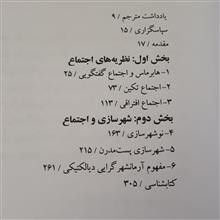 یادداشت مترجم / ۹
سپاسگزاری / ۱۵
مقدمه / ۱۷
بخش اول: نظریه‌های اجتماع
۱- هابرماس و اجتماع گفتگویی / ۲۵
۲- اجتماع تکین / ۷۳
۳- اجتماع افتراقی / ۱۱۳
بخش دوم: شهرسازی و اجتماع
۴- نوشهرسازی / ۱۶۳
۵- شهرسازی پست‌مدرن / ۲۱۵
۶- مفهوم آرمانشهرگرایی دیالکتیکی / ۲۶۱
کتابشناسی / ۳۰۵